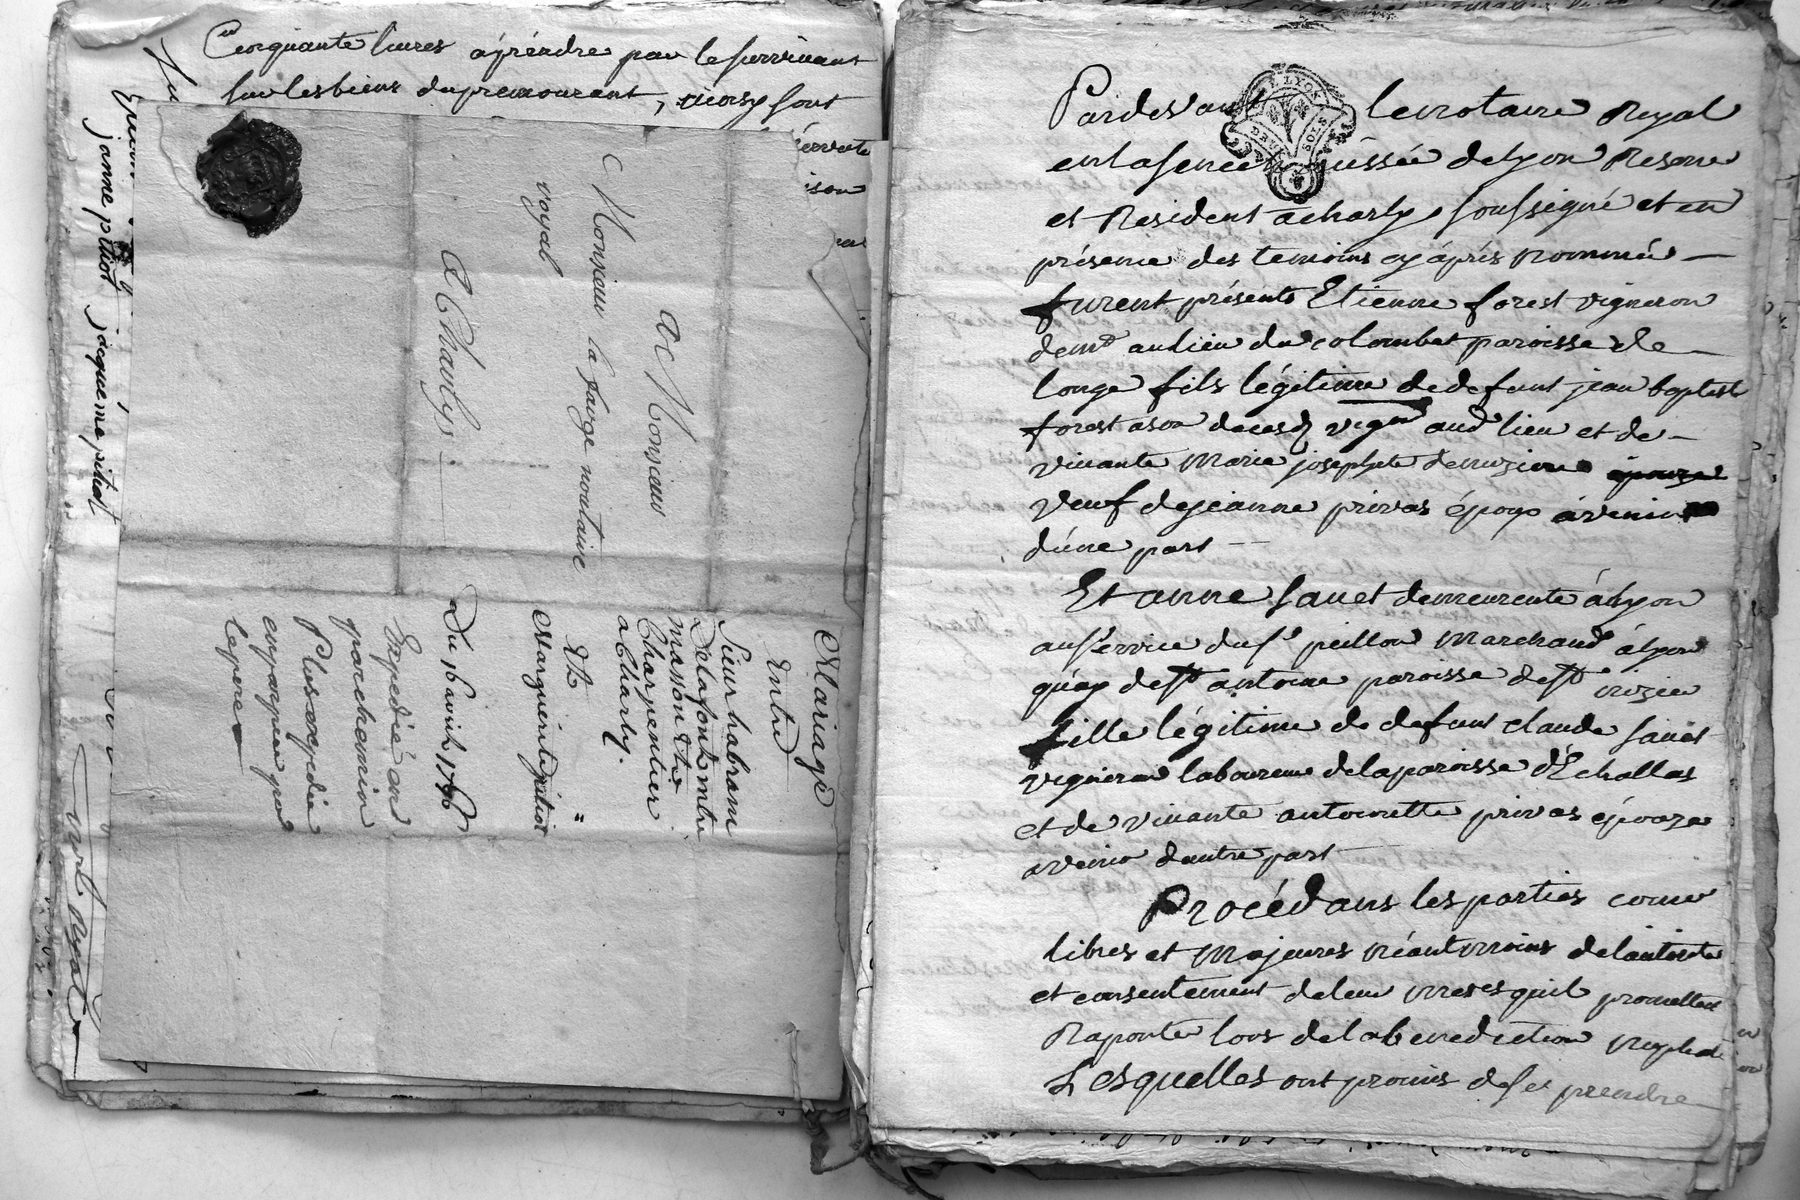 Cinquante livres a prendre par le survivant
sur les biens du premourant, ainsy sont
janne pitiot jacqueme pitiot
A Monsieur
Monsieur la farge noutaire
royal
A Charly
Mariage
Entre
Sieur habram
Delafond mtre
masson et
Charpentier
a Charly.
Et
Marguerite pitiot
Du 16 avril 1790
Expedié en
parchemin
Plus expedié
en papier pour
le pere
Pardevant le notaire Royal
en la senechaussée de lyon Reservé
et Resident a charly soussigné et en
présence des temoins cy áprés nommés
furent présents Etienne forest vigneron
demt au lieu du colombet paroisse de
longe fils légitime de defunt jean baptiste
forest a son decesd vigon aud lieu et de
vivante Marie josephte
veuf de jeanne privas époux á venir
d'une part
Et anne sauet demeurente á lyon
au service du sr peillon Marchand á lyon
quay de st antoine paroisse de st nizier
fille légitime de defunt claude sauet
vigneron laboureur de la paroisse d'Echallas
et de vivante antoinette privas épouze
avenir dautre part
Procédans les parties come
libres et Majeures néantmoins de lautorité
et consentement de leur meres quil promettent
Raporté lors de la benediction nuptial
Lesquelles ont promis de se prendre
LYON
DEUX SOLS